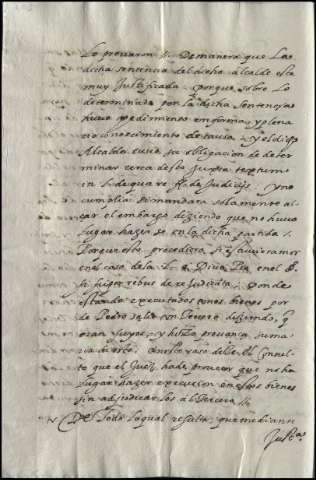 Lo provaron Demanera que La
dicha sentencia del dicho alcalde esta
muy Justificada porque sobre Lo
determinado por la dicha sentencia
huvo pedimiento en forma y plena
rio conocimiento de causa y el dicho
Alcalde tuvo obligacion de deter
minar cerca desto Juxta textum
in de Judicijs y no
cumplia mandara solamente al
çar el embargo diziendo que no huvo
lugar hazerse en la dicha partida
Porque esto procediera si estuvieramos
en el caso de la Divo Pio en el §
si super rebus de re Judicata Donde
estando executados unos bienes por
de Pedro salio un tercero diziendo q
eran suyos y hizo provança suma
ria en este caso el Consul
to que el Juez hade proveer que no ha
lugar hazer execucion en estos bienes
sin adjudicarlos al tercero
De Todo Lo qual resulta que mediann